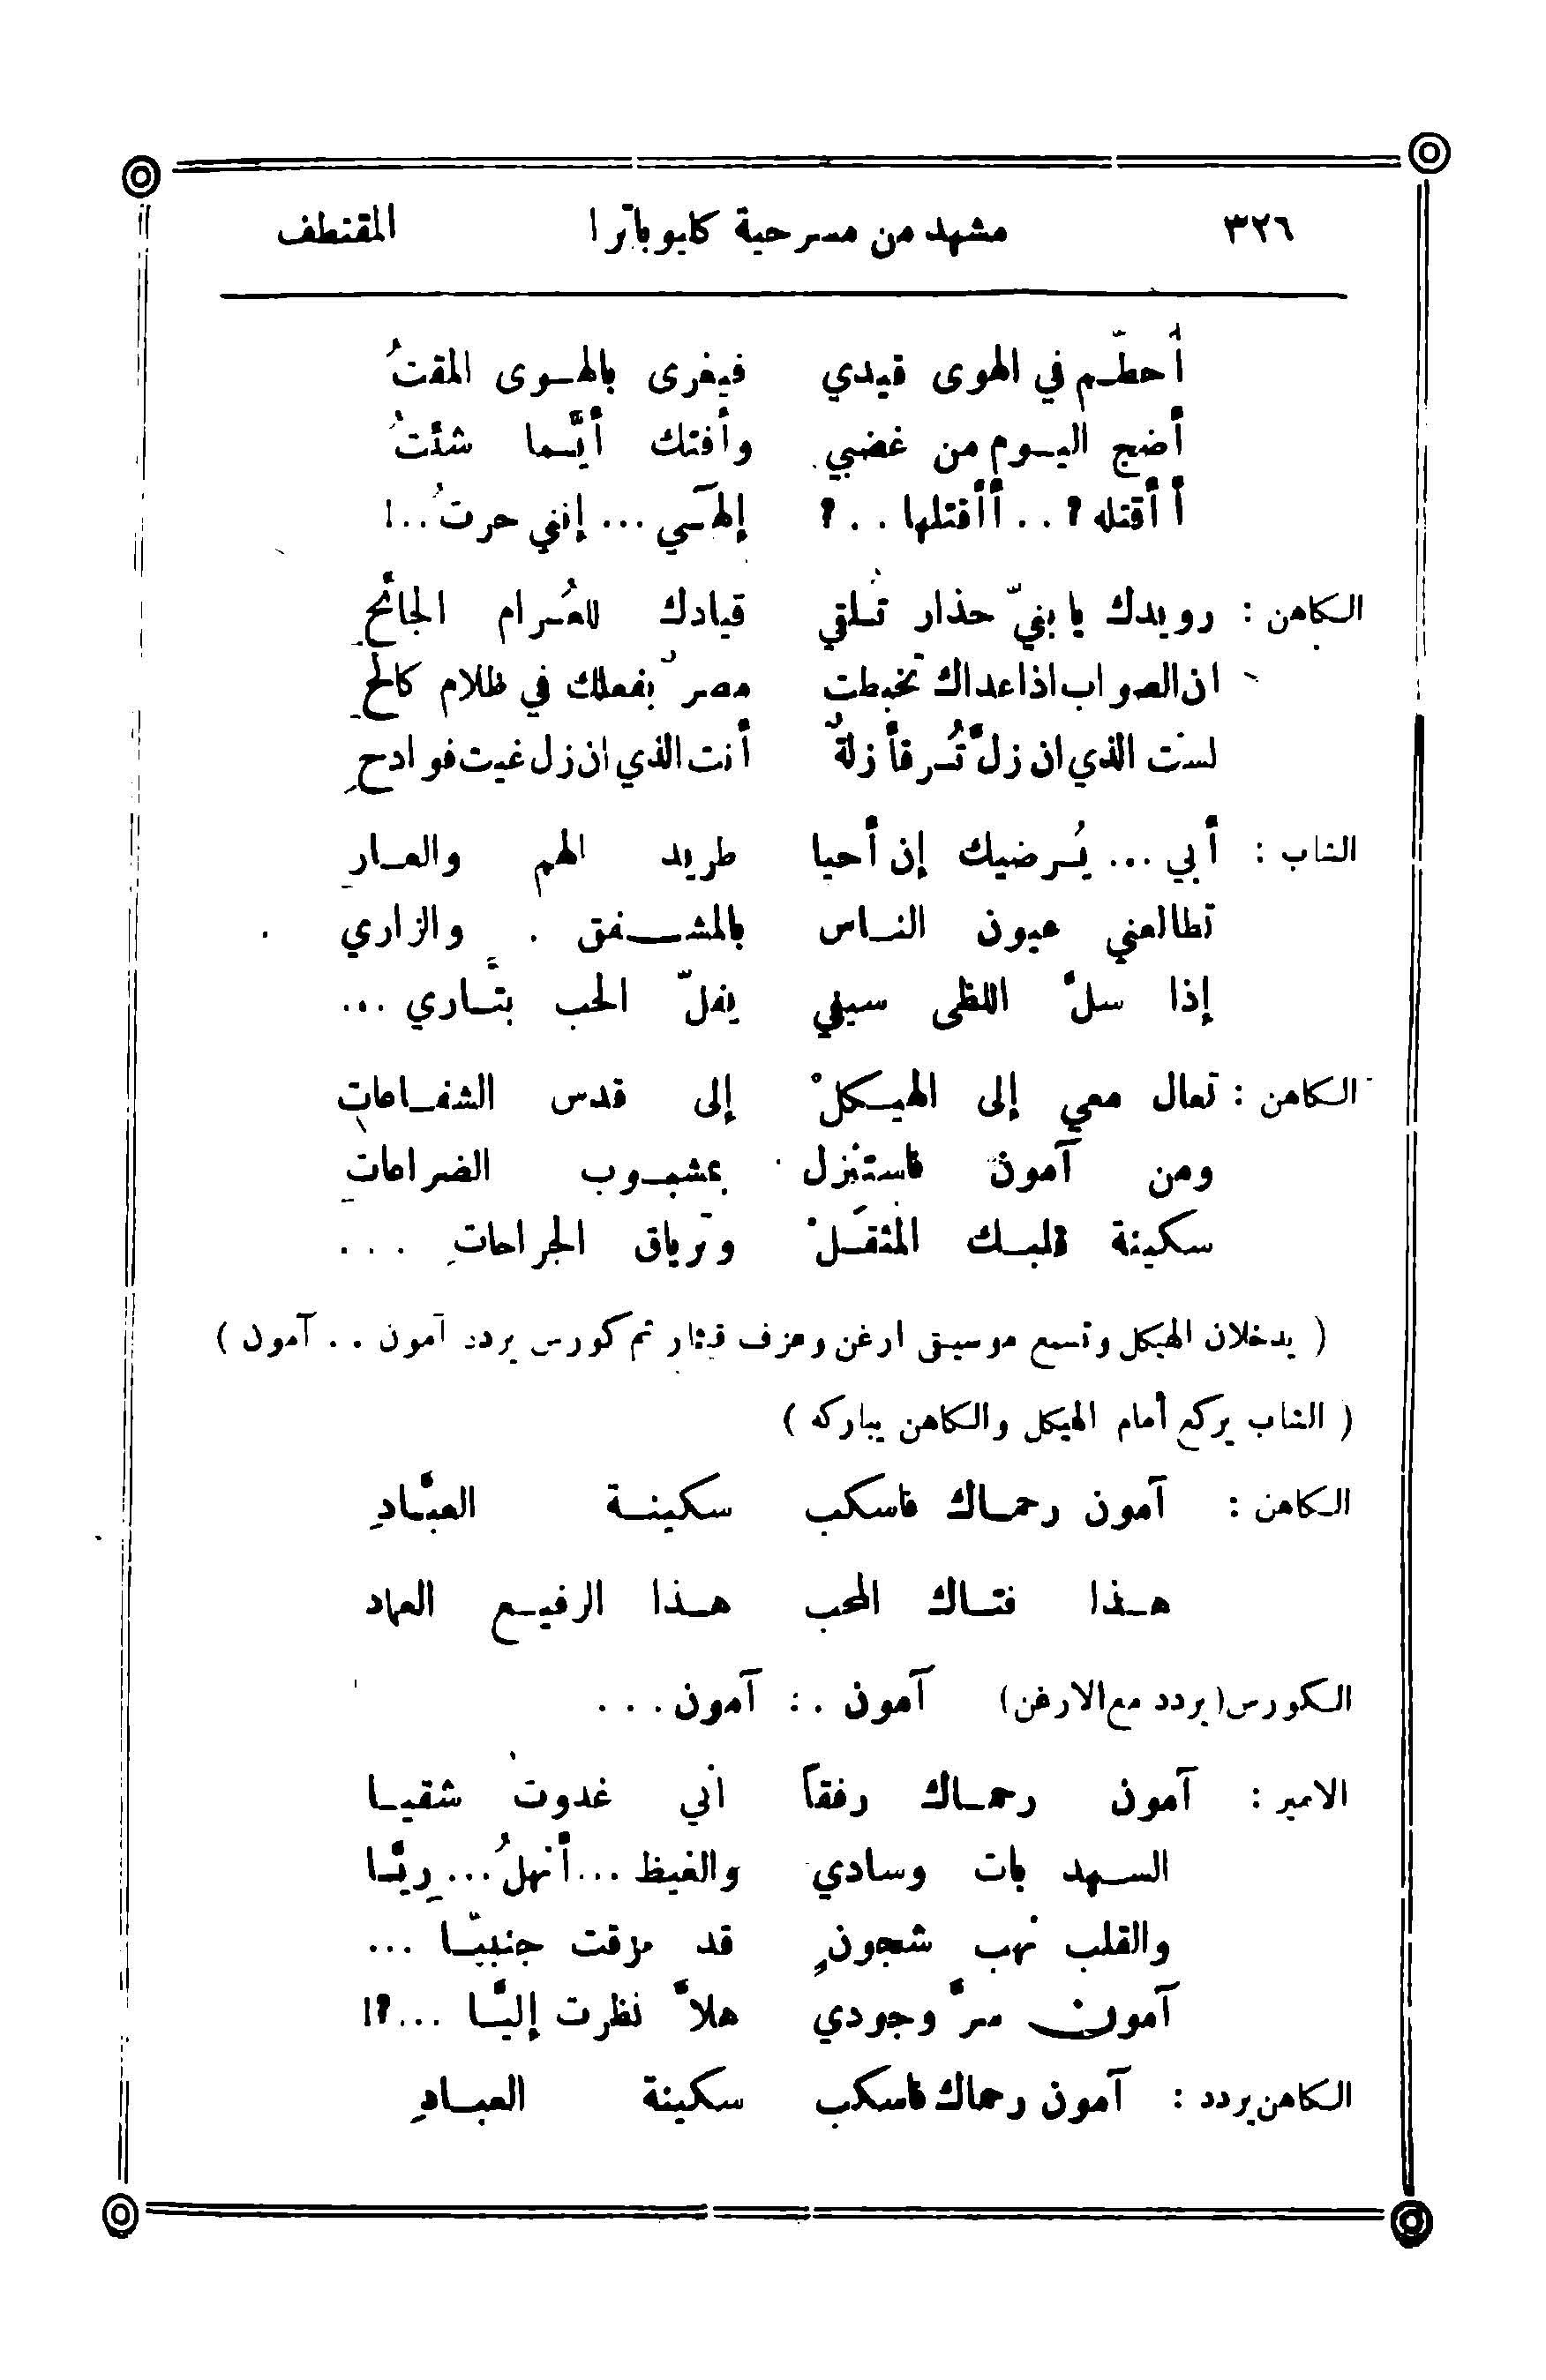 ٣٢٦ مشهد من مسرحية كليوباترا المقتطف
أحطّم في الهوى قيدي فيغرى بالهوى المقتُ
أضج اليوم من غضبي وأفتك أيَّما شئتُ
أ أقتله ؟ . . أأقتلها . . ؟ إلهَي ... إنني حرتُ ..!
الكاهن : رويدك يا بنيّ حذار تُلقي قيادك للعُرام الجائحِ
ان الصواب اذا عداك تخبطت مصرٌ بفعلك في ظلام كالحِ
لست الذي ان زلَّ تُرفأ زلةٌ أنت الذي ان زل غيت فوادحِ
الشاب : أبي ... يُرضيك إن أحيا طريد الهم والعارِ
تطالعني عيون الناس بالمشفق . والزاري
إذا سلَّ اللظى سيفي يفلّ الحب بتَّاري ...
الكاهن : تعال معي إلى الهيكلْ إلى قدس الشفاعاتِ
ومن آمون فاستنزل بمشبوب الضراعاتِ
سكينة قلبك المثقَلْ وترياق الجراحاتِ ...
( يدخلان الهيكل وتسمع موسيقى ارغن وعزف قيثار ثم كورس يردد آمون . . آمون )
( الشاب يركع أمام الهيكل والكاهن يباركه )
الكاهن : آمون رحماك فاسكب سكينة العبَّادِ
هذا فتاك المحب هذا الرفيع العماد
الكورس (يردد مع الارغن) آمون . : آمون . . .
الامير : آمون رحماك رفقاً اني غدوت شقيا
السهد بات وسادي والغيظ ... أنهلُ ... رِيَّا
والقلب نهب شجونٍ قد مزقت جنبيّا ...
آمون سرَّ وجودي هلاَّ نظرت إليَّا ...؟!
الكاهن يردد : آمون رحماك فاسكب سكينة العبادِ